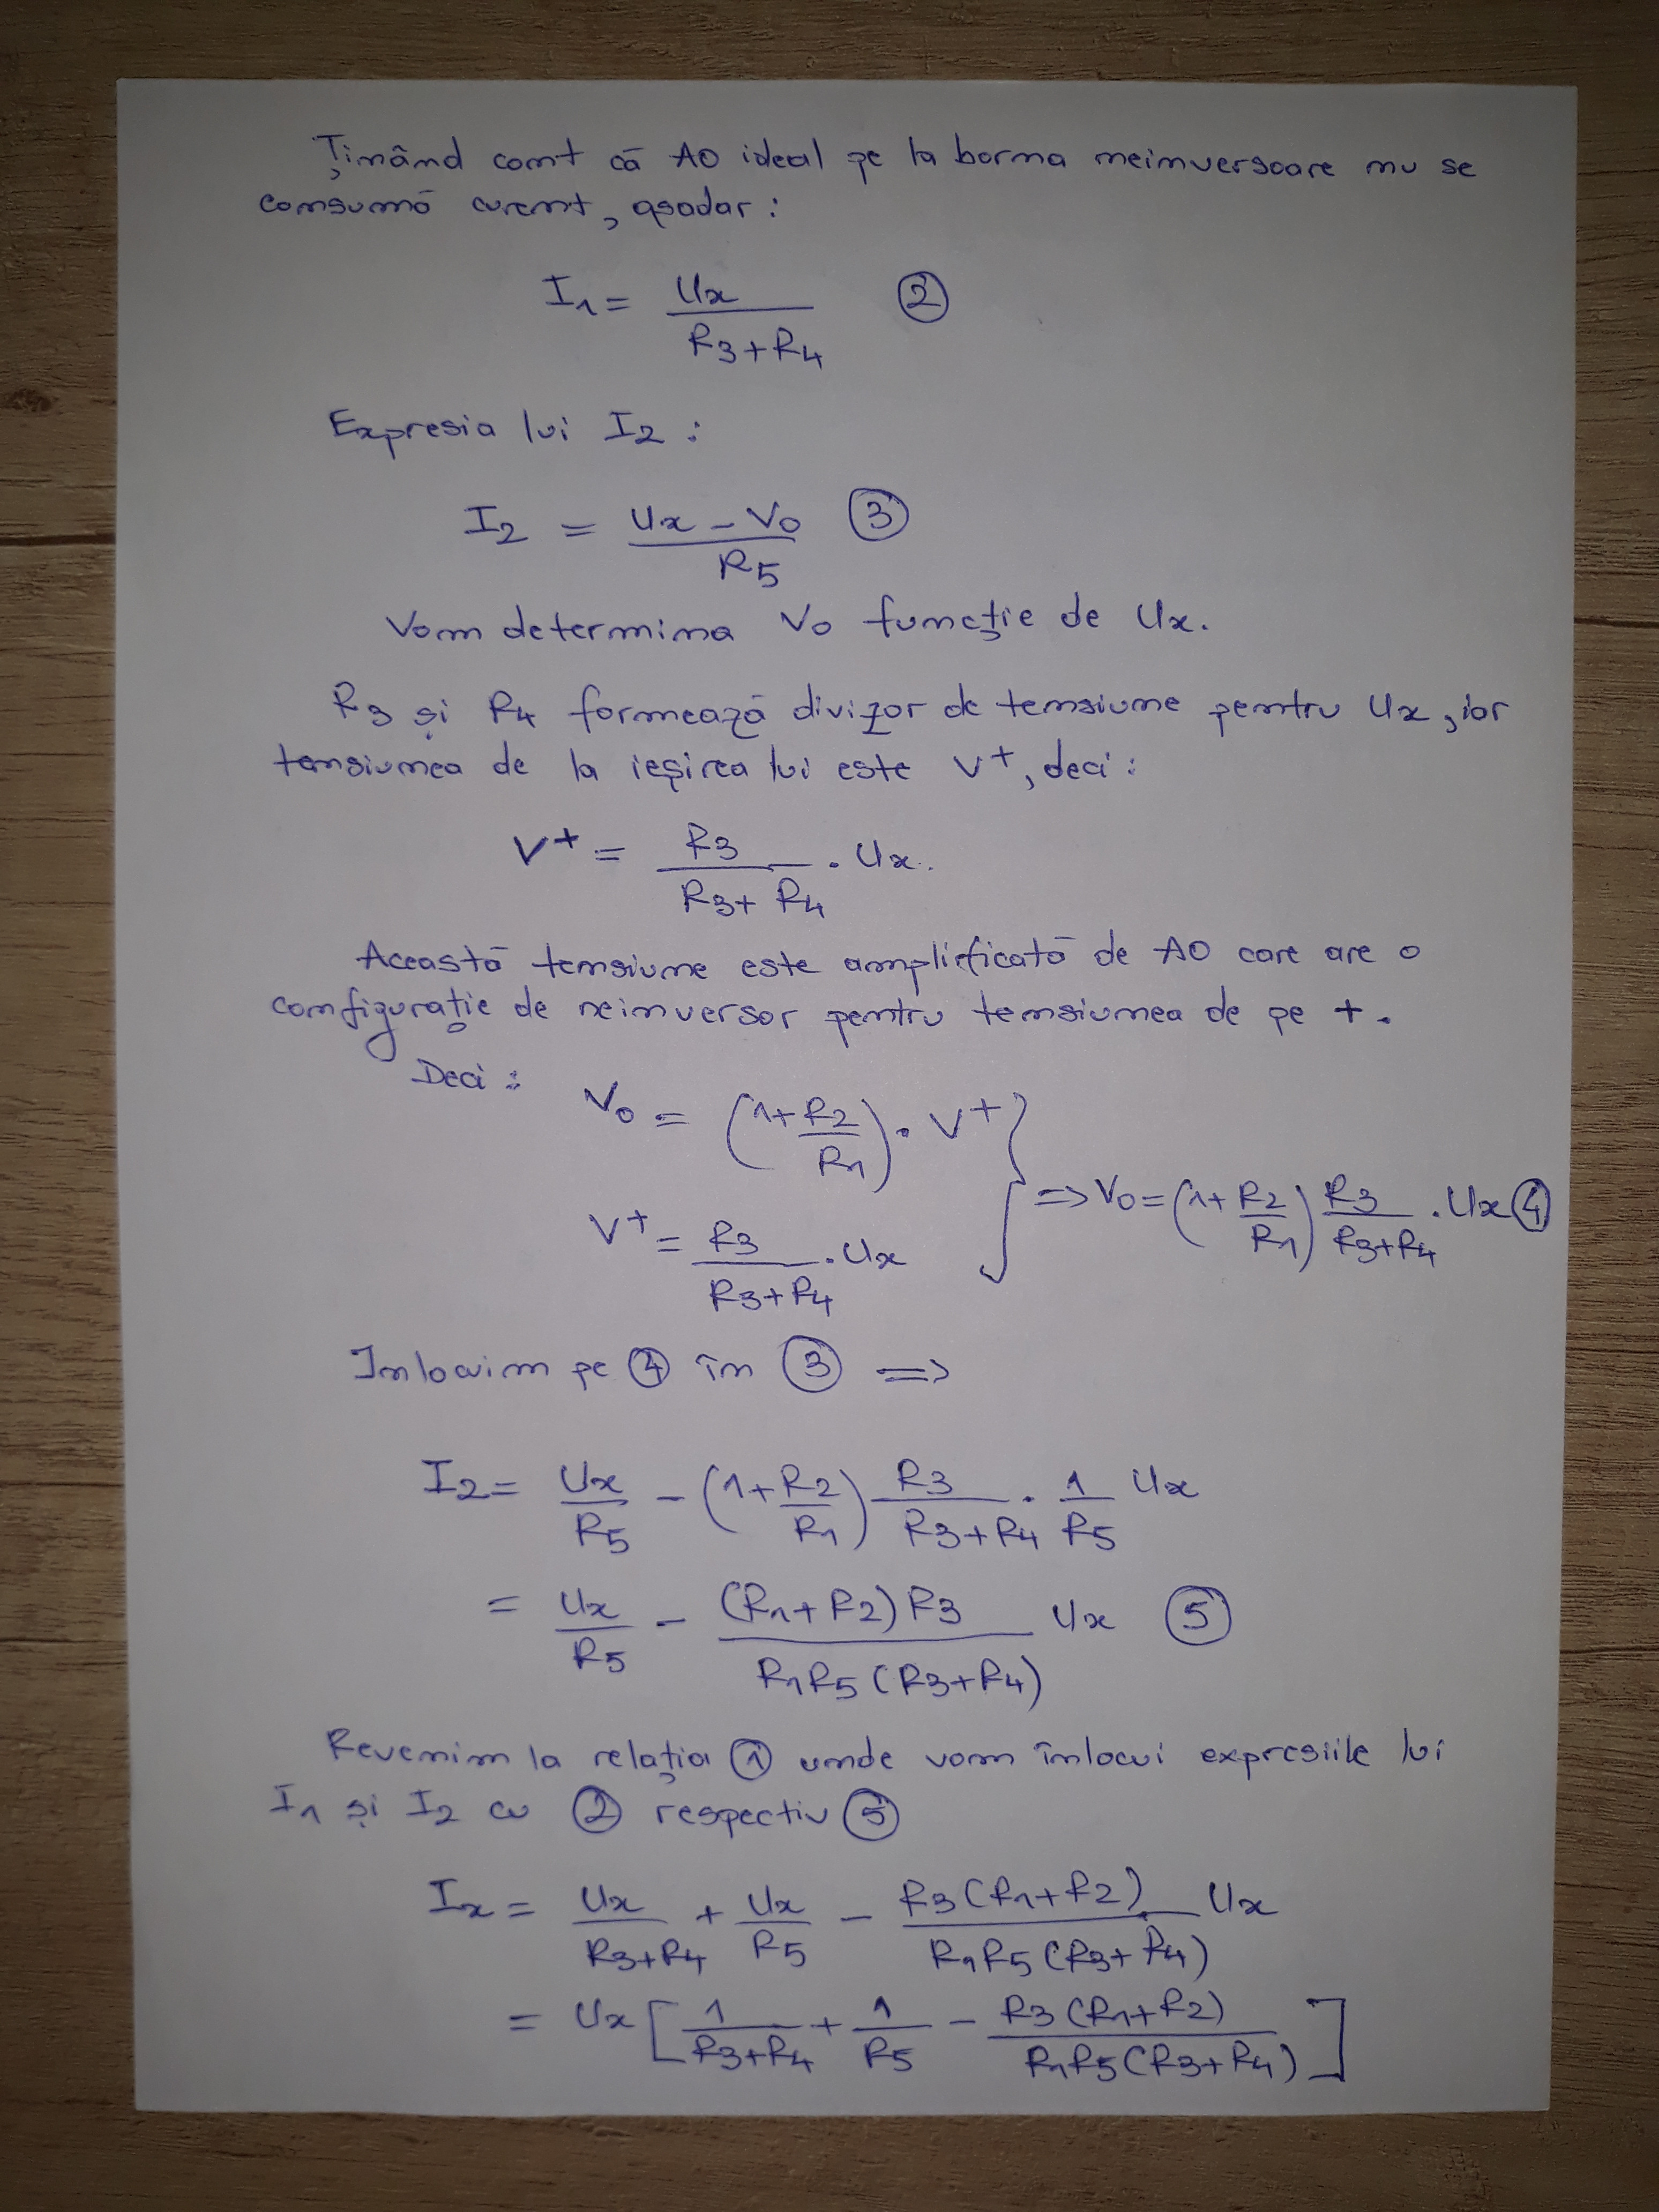 Ținând cont că AO ideal pe la borna neinversoare nu se
consumă curent, așadar:
I1 = Ux / (R3+R4) ②
Expresia lui I2 :
I2 = (Ux - Vo) / R5 ③
Vom determina Vo funcție de Ux.
R3 și R4 formează divizor de tensiune pentru Ux, iar
tensiunea de la ieșirea lui este V+, deci:
V+ = R3 / (R3+R4) · Ux.
Această tensiune este amplificată de AO care are o
configurație de neinversor pentru tensiunea de pe +.
Deci :
Vo = (1+R2/R1) · V+
V+ = R3 / (R3+R4) · Ux } => Vo = (1+R2/R1) R3 / (R3+R4) · Ux ④
Inlocuim pe ④ în ③ =>
I2 = Ux/R5 - (1+R2/R1) R3 / (R3+R4) · 1/R5 Ux
= Ux/R5 - (R1+R2)R3 / R1R5(R3+R4) Ux ⑤
Revenim la relația ① unde vom înlocui expresiile lui
I1 și I2 cu ② respectiv ⑤
Ix = Ux / (R3+R4) + Ux/R5 - R3(R1+R2) / R1R5(R3+R4) Ux
= Ux [1 / (R3+R4) + 1/R5 - R3(R1+R2) / R1R5(R3+R4)]